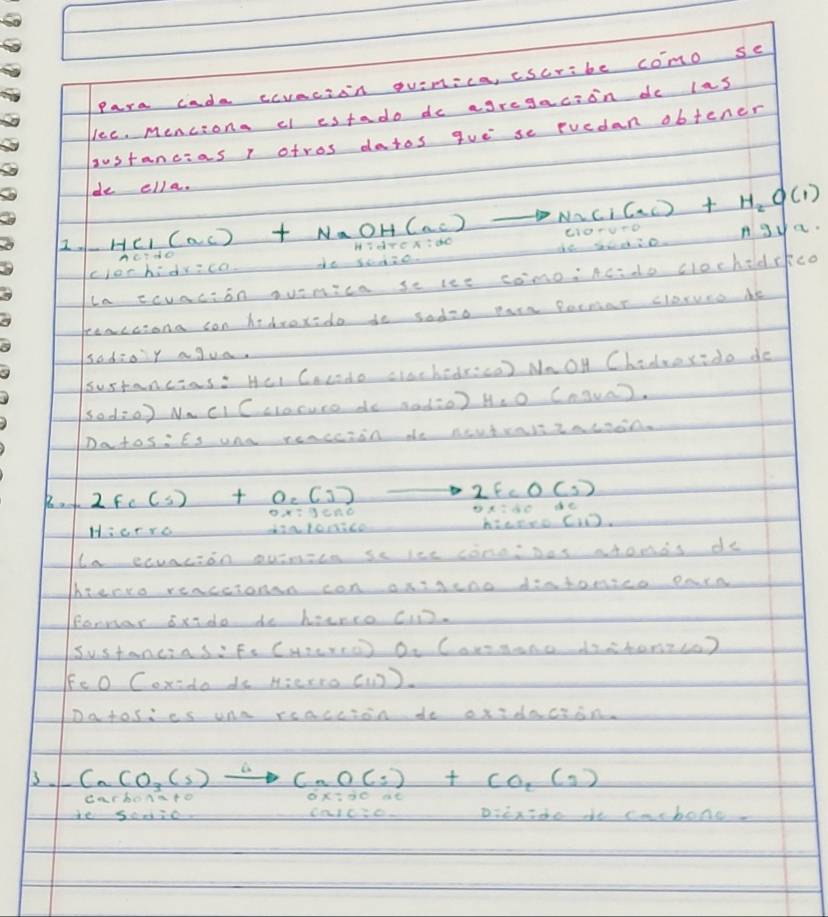 Para cada ecuación química, escribe cómo se
lee. Menciona el estado de agregación de las
sustancias y otros datos que se puedan obtener
de ella.
1.- HCl (ac) + NaOH (ac) → NaCl (ac) + H₂O (l)
Acido Hidroxido cloruro Agua.
clorhidrico. de sodio de sodio.
La ecuación química se lee cómo: Acido clorhidrico
reacciona con hidroxido de sodio para formar cloruro de
sodio y agua.
sustancias: HCl (acido clorhidrico) NaOH (hidroxido de
sodio) NaCl (cloruro de sodio) H₂O (agua).
Datos: Es una reacción de neutralización.
2.- 2Fe (s) + O₂ (g) → 2FeO (s)
oxigeno oxido de
Hierro diatonico hierro (II).
La ecuación química se lee cómo: Dos atomós de
hierro reaccionan con oxigeno diatonico para
formar óxido de hierro (II).
Sustancias: Fe (Hierro) O₂ (oxigeno diatonico)
FeO (oxido de Hierro (II)).
Datos: es una reacción de oxidación.
3.- CaCO₃ (s) Δ→ CaO (s) + CO₂ (g)
carbonato óxido de
de sodio. calcio. Dióxido de carbono.